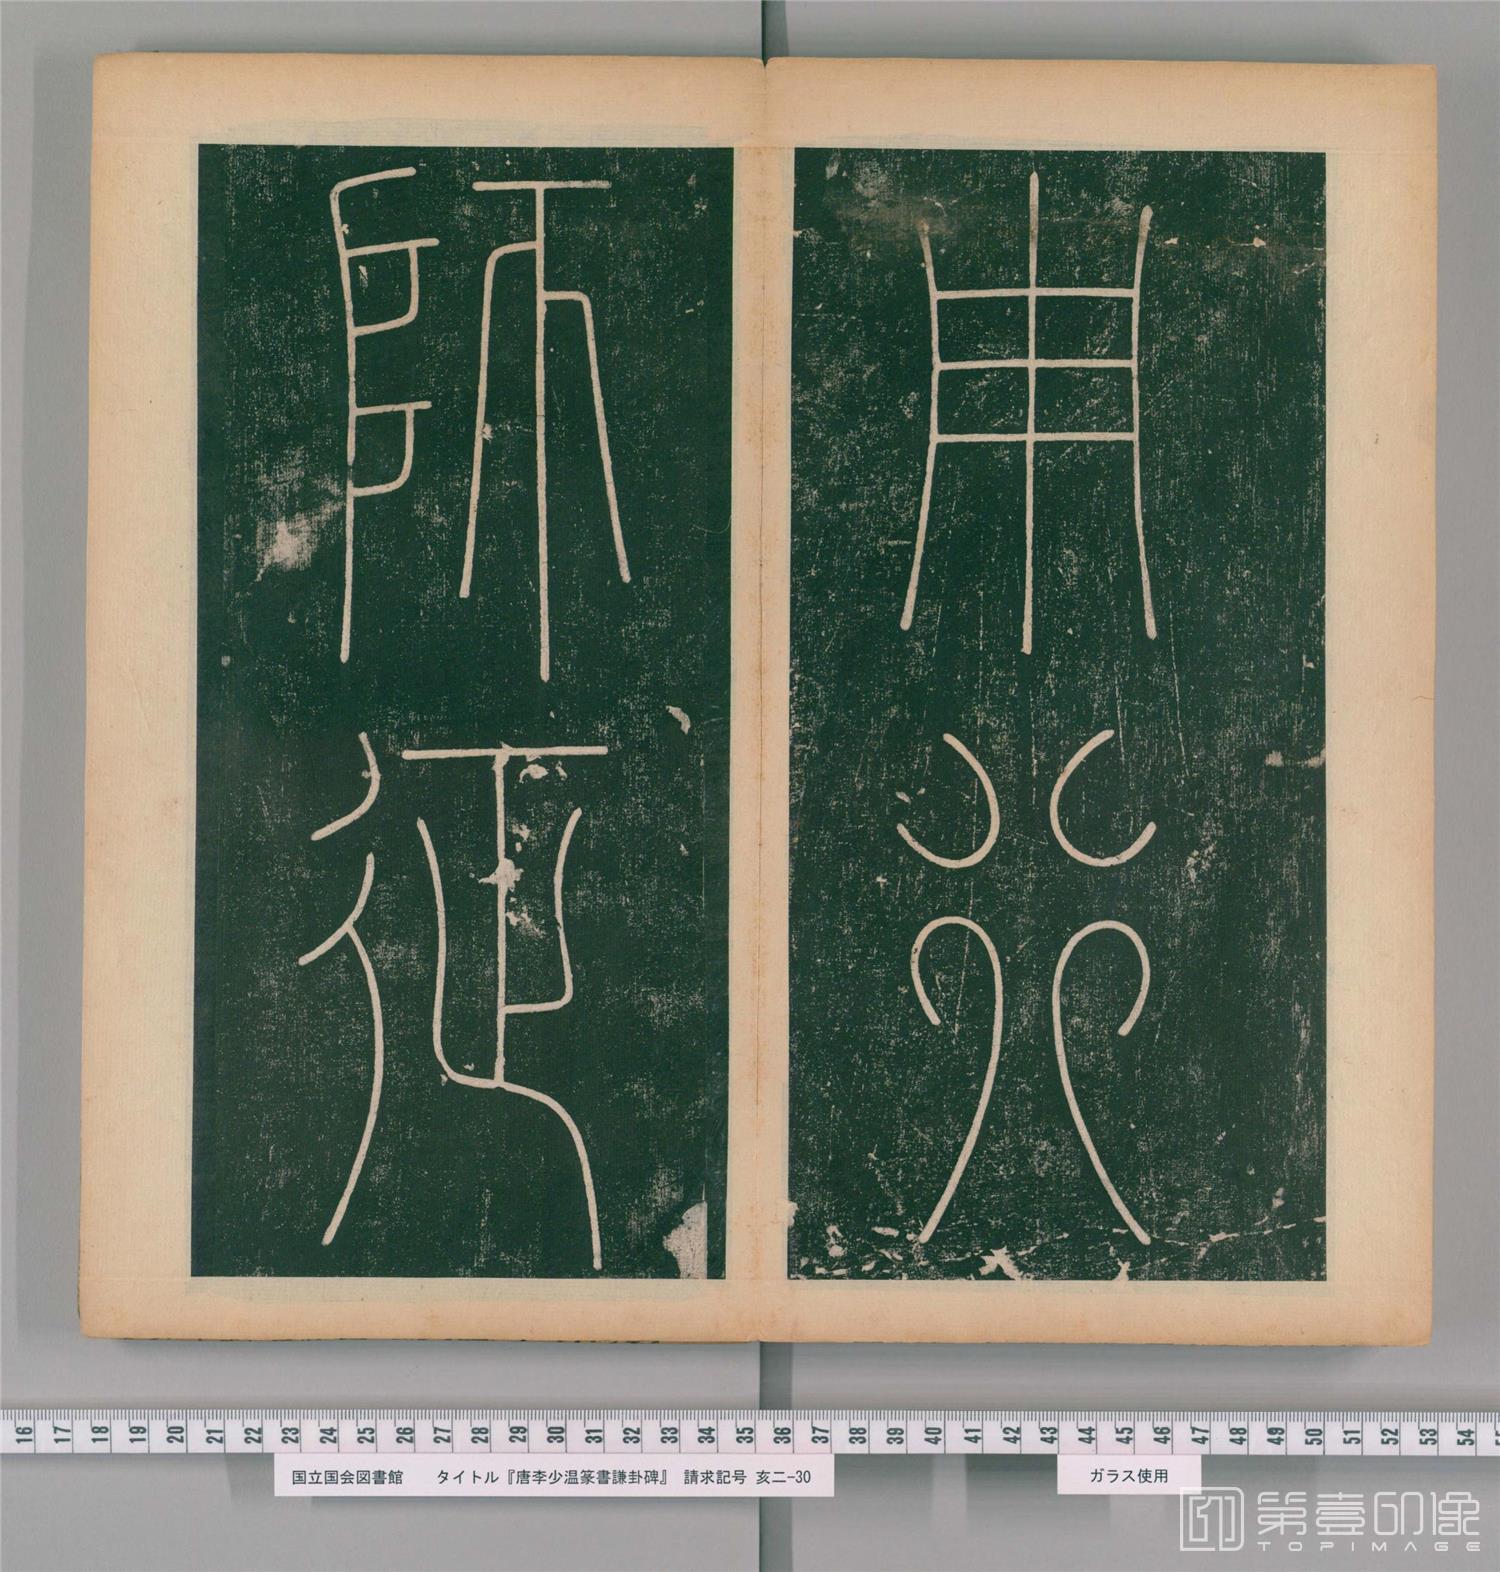 用行
師征
16 17 18 19 20 21 22 23 24 25 26 27 28 29 30 31 32 33 34 35 36 37 38 39 40 41 42 43 44 45 46 47 48 49 50 51 52 53 54
国立国会図書館 タイトル『唐李少温篆書謙卦碑』 請求記号 亥二-30
ガラス使用
第壹印像
TOPIMAGE